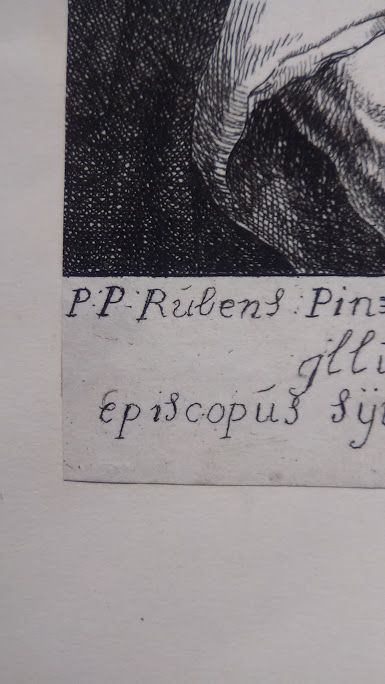 P·P·Rúbens: Pinx
jllú
episcopús sÿ